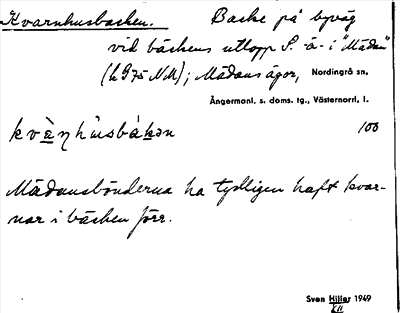 Kvarnhusbacken. Backe på byväg
vid bäckens utlopp S. å- i "Mädan"
(h 975 NM); Mädans ägor, Nordingrå sn,
Ångermanl. s. doms. tg., Västernorrl. l.
100
Mädansbönderna ha tydligen haft kvar-
nar i bäcken förr.
Sven Hiller 1949
XII